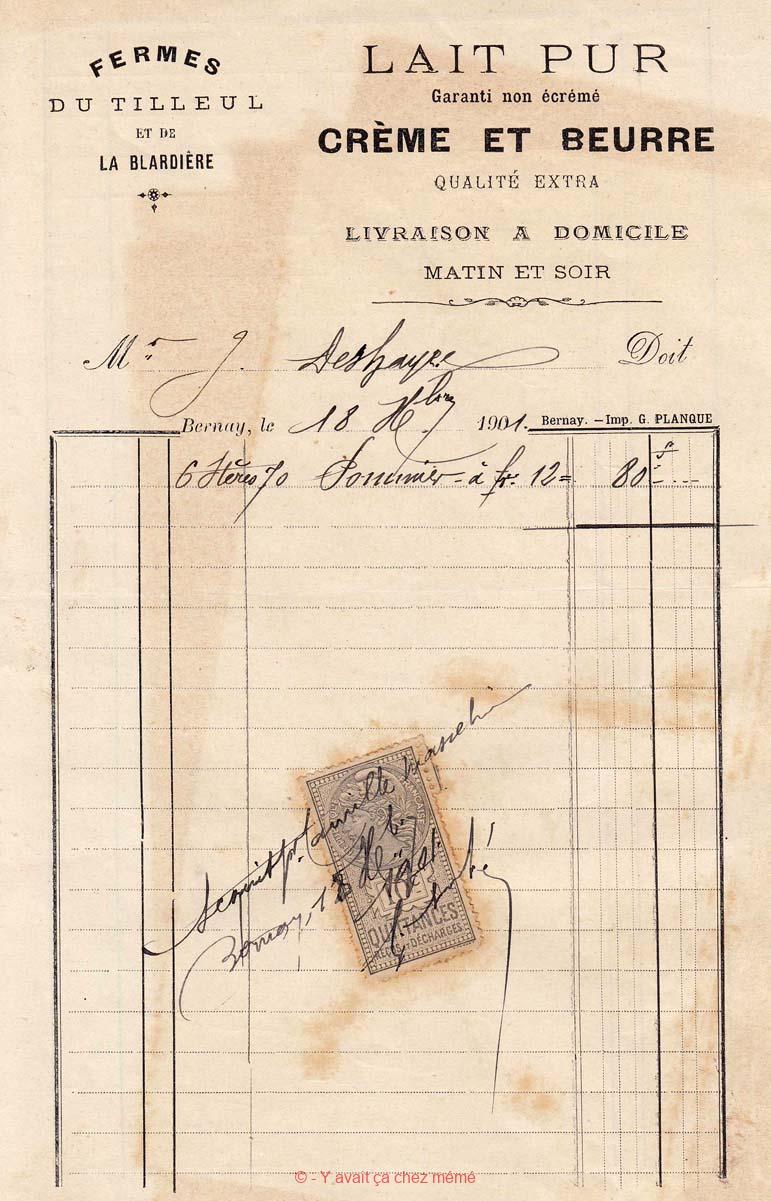 FERMES
DU TILLEUL
ET DE
LA BLARDIÈRE
LAIT PUR
Garanti non écrémé
CRÈME ET BEURRE
QUALITÉ EXTRA
LIVRAISON A DOMICILE
MATIN ET SOIR
Mr J. Deshayes Doit
Bernay, le 18 Xbre 1901.
Bernay. – Imp. G. PLANQUE
6 Stères 70 Pommier - à fr. 12 = 80 f
Acquit pr. Camille
Bernay, 18 Xb.
1901.
10c
QUITTANCES
REÇUS ET DÉCHARGES
© - Y avait ça chez mémé